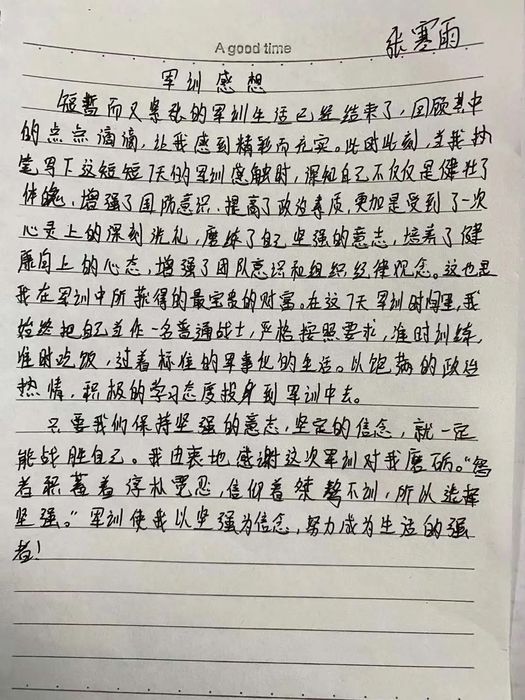 A good time
张寒雨
军训感想
短暂而又紧张的军训生活已经结束了,回顾其中
的点点滴滴,让我感到精彩而充实。此时此刻,当我执
笔写下这短短7天的军训感触时,深知自己不仅仅是健壮了
体魄,增强了国防意识,提高了政治素质,更加是受到了一次
心灵上的深刻洗礼,磨练了自己坚强的意志,培养了健
康向上的心态,增强了团队意识和组织纪律观念。这也是
我在军训中所获得的最宝贵的财富。在这7天军训时间里,我
始终把自己当作一名普通战士,严格按照要求,准时训练,
准时吃饭,过着标准的军事化的生活。以饱满的政治
热情,积极的学习态度投身到军训中去。
只要我们保持坚强的意志,坚定的信念,就一定
能战胜自己。我由衷地感谢这次军训对我磨砺。“智
者积蓄着,信仰着桀骜不训,所以选择
坚强。”军训使我以坚强为信念,努力成为生活的强
者!